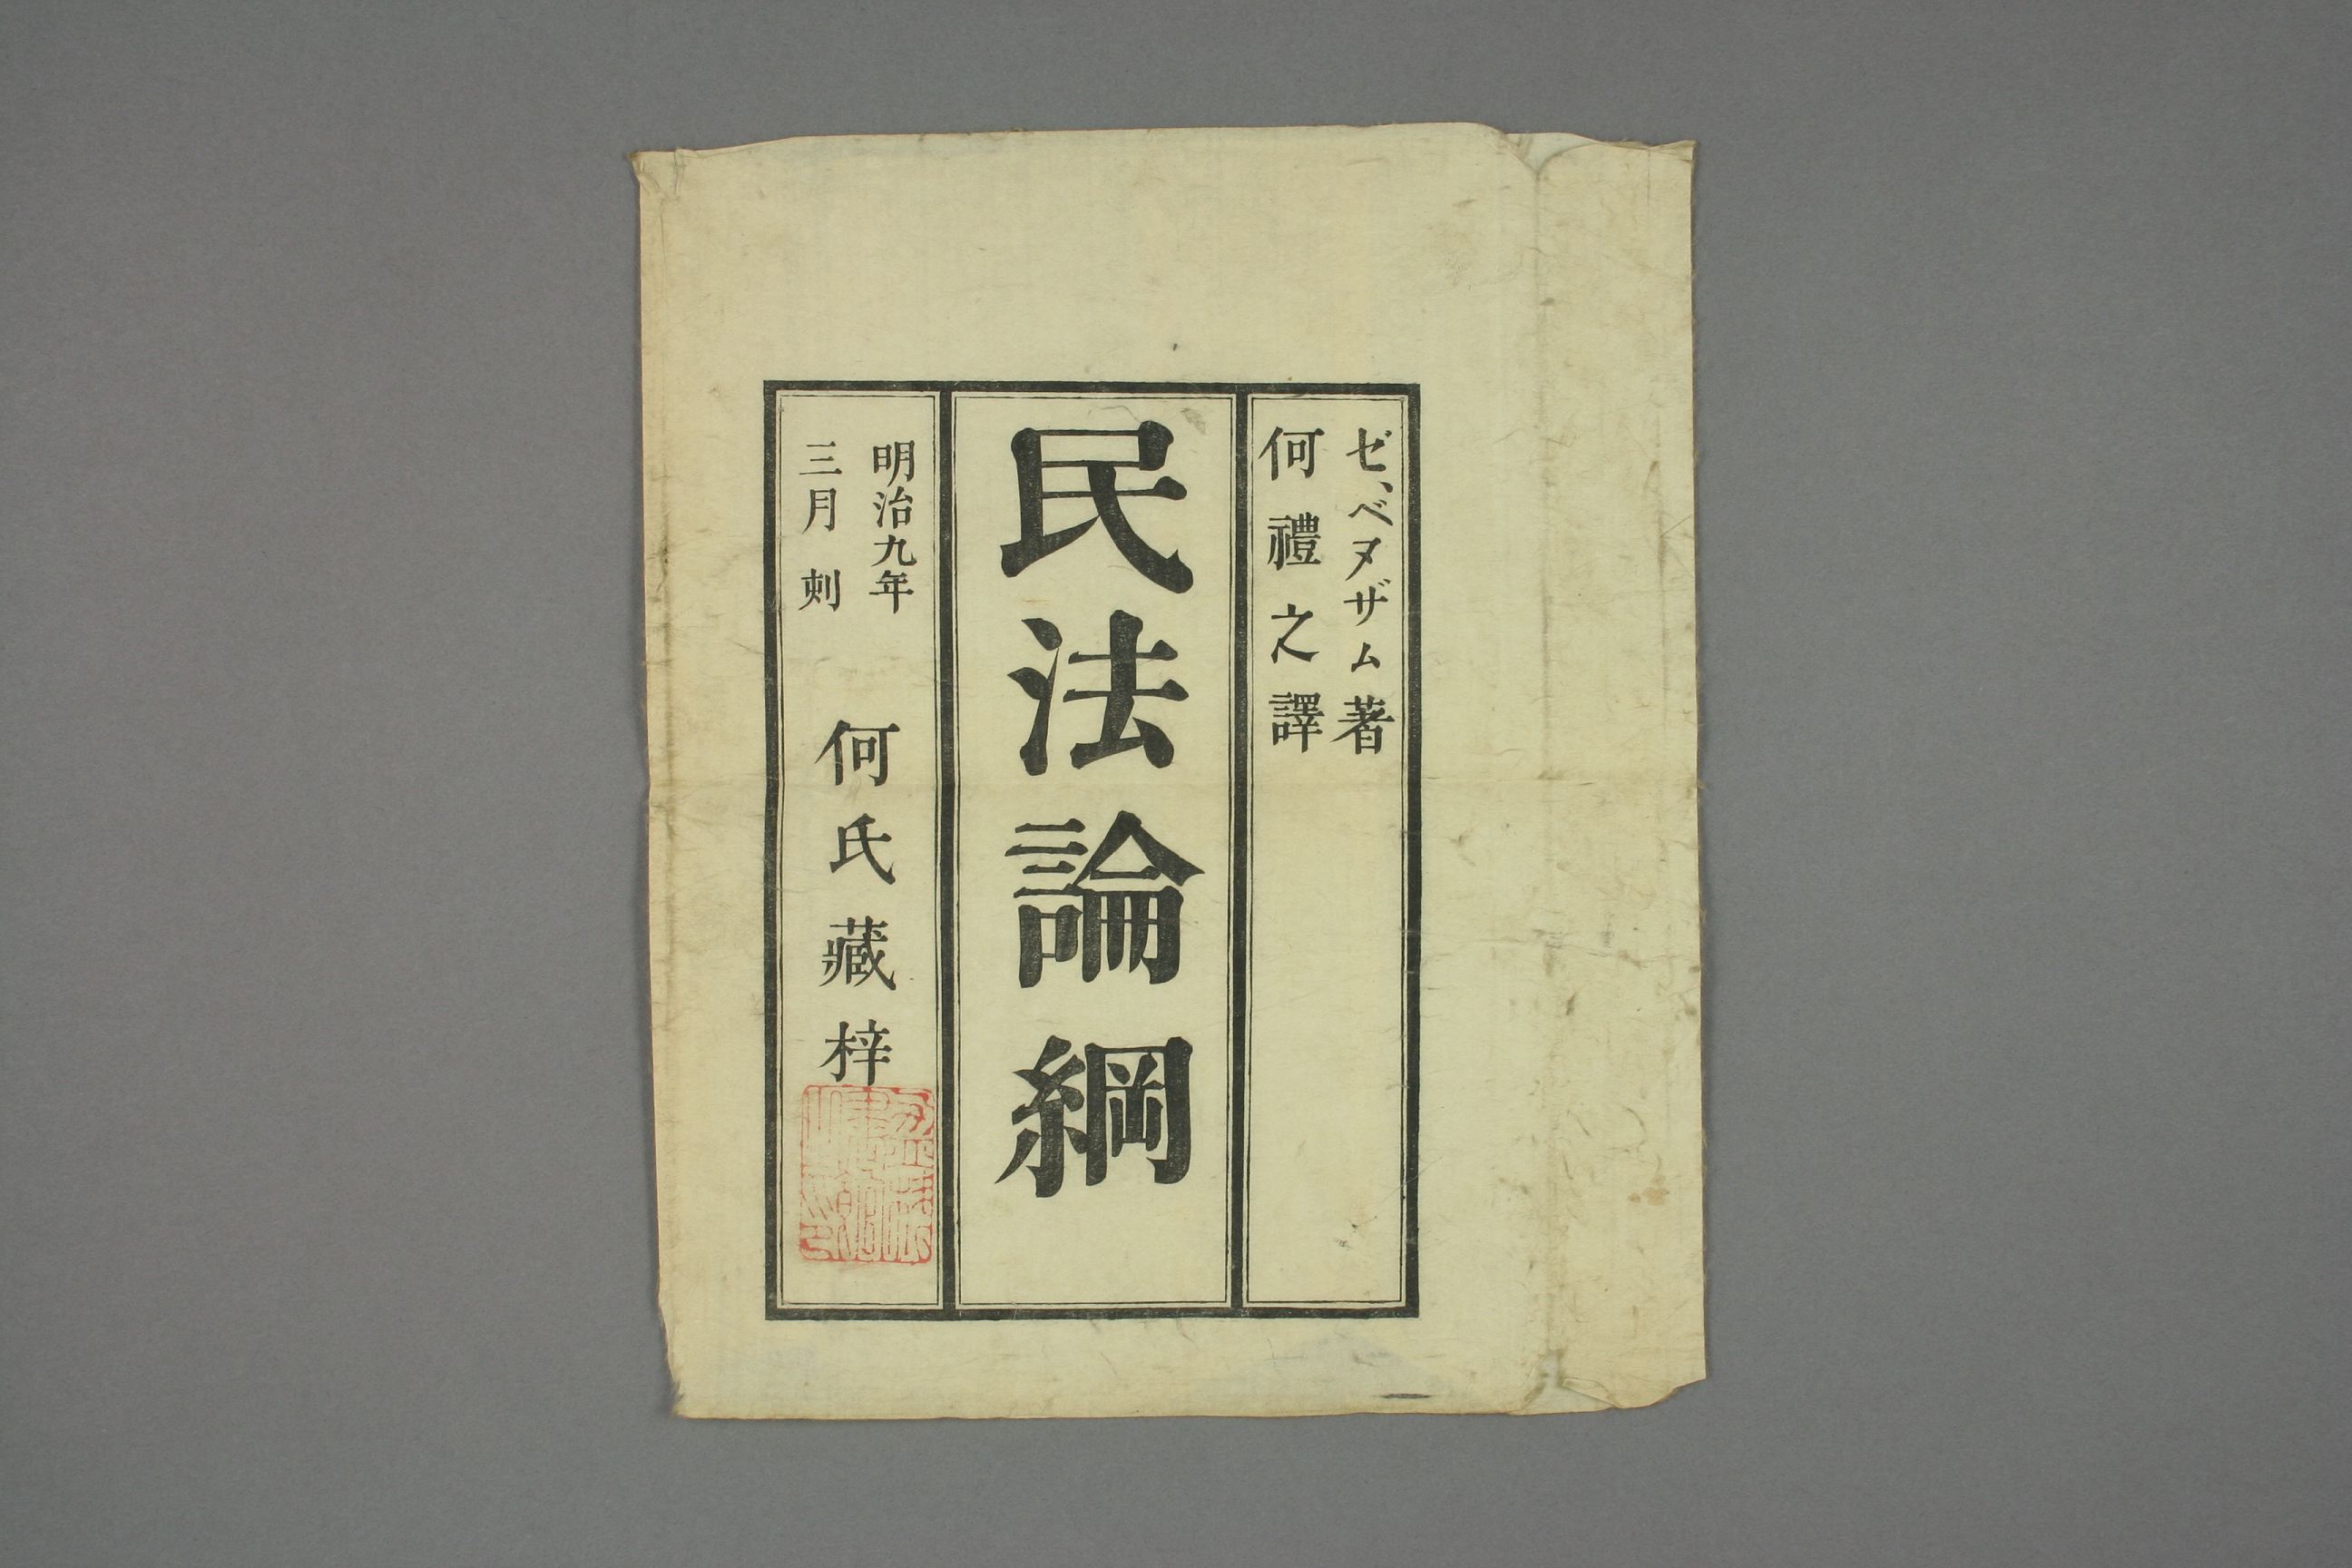 ゼ、ベヌザム著
何禮之譯
民法論綱
明治九年
三月刻
何氏藏梓